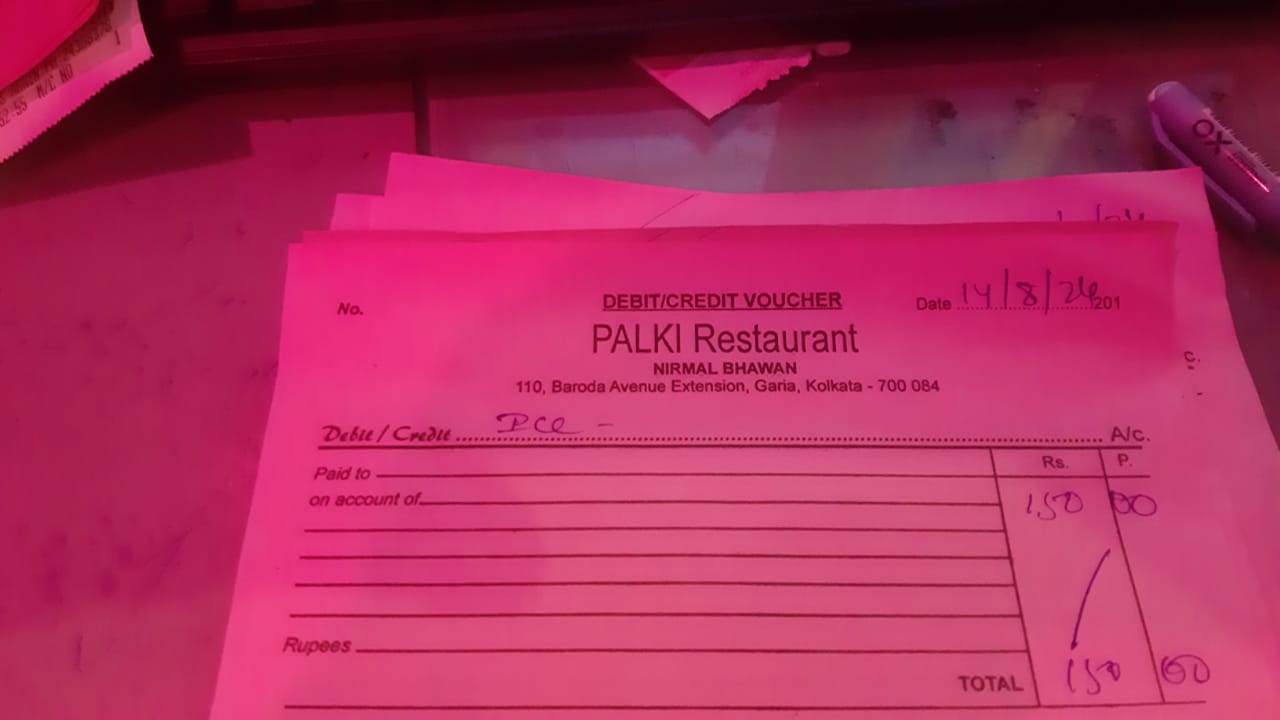 52:55 M/C NO
OX
No.
DEBIT/CREDIT VOUCHER
Date 14/8/24 201
PALKI Restaurant
NIRMAL BHAWAN
110, Baroda Avenue Extension, Garia, Kolkata - 700 084
Debit / Credit Ice - A/c.
Paid to Rs. P.
on account of 150 00
Rupees
TOTAL 150 00